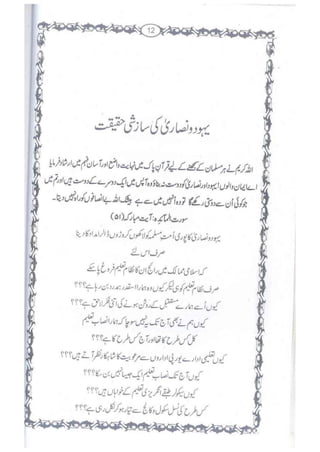 12
یہود و نصاریٰ کی سازشی حقیقت
اللہ کریم نے ہر مسلمان کے سمجھنے کے لیے قرآن پاک میں نہایت واضح اور آسان فہم میں ارشاد فرمایا
اے ایمان والوں! یہود اور نصاریٰ کو دوست نہ بناؤ وہ آپس میں ایک دوسرے کے دوست ہیں اور تم میں
جو کوئی اُن سے دوستی رکھے گا تو وہ انہیں میں سے ہے بیشک اللہ بے انصافوں کو راہ نہیں دیتا۔
سورت المائدہ: آیت مبارکہ (۵۱)
یہود و نصاریٰ کا پوری اُمت مسلمہ کو لاکھوں کروڑوں ڈالر امداد کا دینا
صرف اس لئے
کہ اسلامی ممالک میں رائج ان کا نظام تعلیم فروغ پا سکے
صرف نظام تعلیم ہی لیکر کیوں وہ ہمارا اسقدر ہمدرد بن رہا ہے؟؟؟
کیوں اُسے ہمارے مستقبل کے روشن ہونے کی اتنی فکر لاحق ہے؟؟؟
کیوں ہم نے بھی آج تک یہ نہیں سوچا کہ ہمارا نصاب تعلیم
کل کس طرح کا تھا اور آج کس طرح کا ہے؟؟؟
کیوں تعلیمی ادارے یورپی اداروں سے مرعوبیت کا شاہکار نظر آتے ہیں؟؟؟
کیوں آج تک نصاب تعلیم ایک جیسا نہیں بن سکا؟؟؟
کیوں سیکولر طبقے انگریزی تعلیم کے خواہاں ہیں؟؟؟
کس طرح کی نسل سکول و کالج سے تیار ہو کر نکل رہی ہے؟؟؟